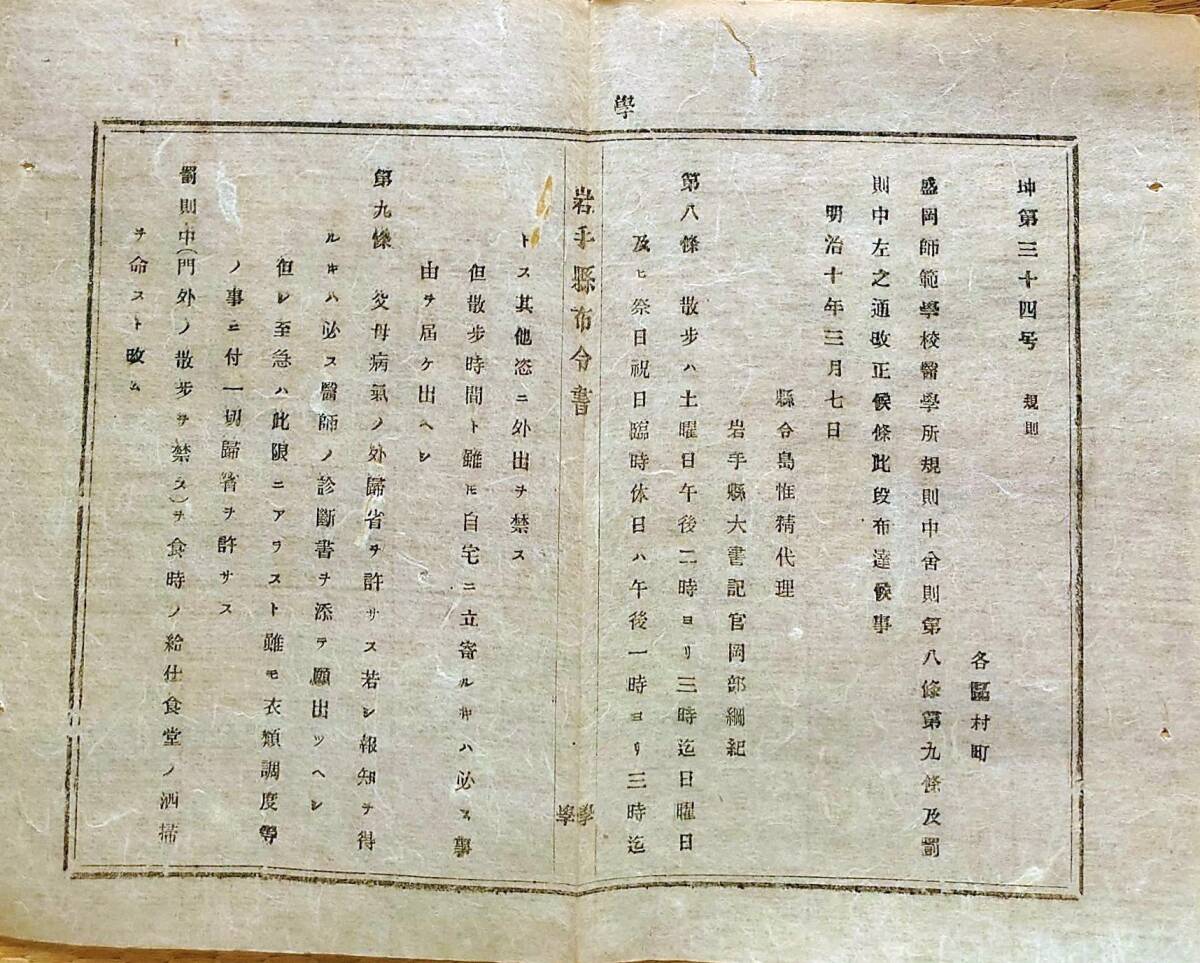 學
坤第三十四号 規則
各區村町
盛岡師範學校醫學所規則中舍則第八條第九條及罰
則中左之通改正候條此段布達候事
明治十年三月七日
縣令島惟精代理
岩手縣大書記官岡部綱紀
第八條 散步ハ土曜日午後二時ヨリ三時迄日曜日
及ヒ祭日祝日臨時休日ハ午後一時ヨリ三時迄
岩手縣布令書
學
學
トス其他恣ニ外出ヲ禁ス
但散步時間ト雖𪜈自宅ニ立寄ルキハ必ス事
由ヲ屆ケ出ヘシ
第九條 父母病氣ノ外歸省ヲ許サス若シ報知ヲ得
ルキハ必ス醫師ノ診斷書ヲ添テ願出ツヘシ
但シ至急ハ此限ニアラスト雖モ衣類調度等
ノ事ニ付一切歸省ヲ許サス
罰則中(門外ノ散步ヲ禁ス)ヲ食時ノ給仕食堂ノ洒掃
ヲ命スト改ム